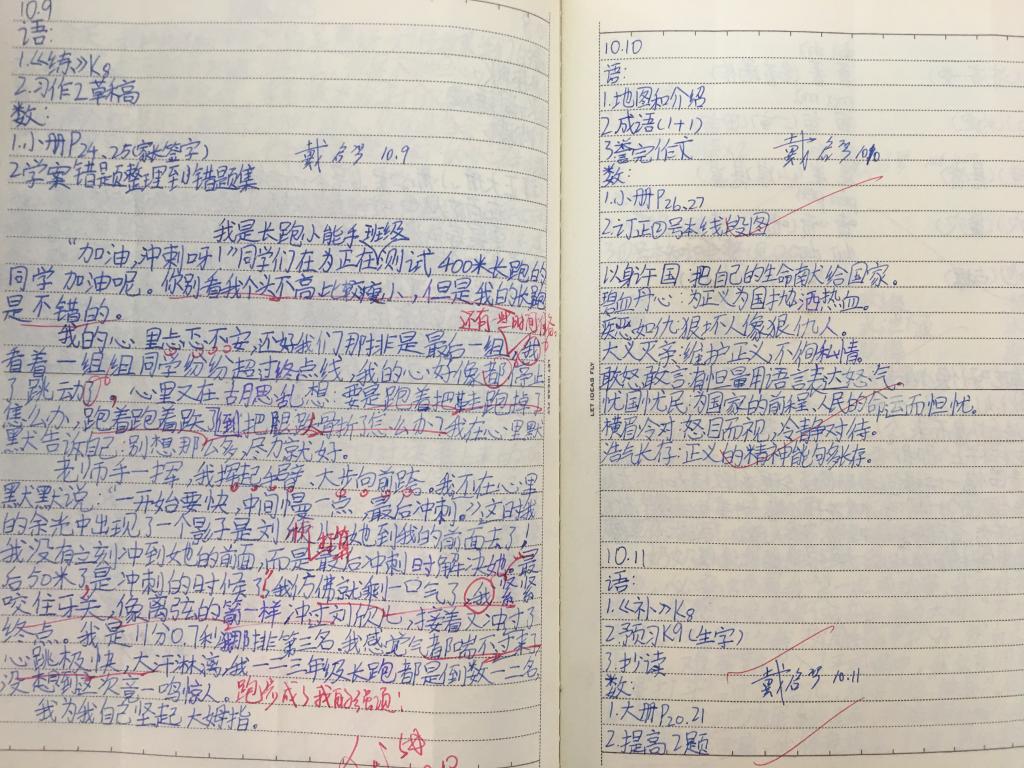 10.9
语:
1.《练》K8
2.习作2草稿
数:
1.小册P24、25(家长签字)
2.学案错题整理到错题集
戴 10.9
我是长跑小能手班级
“加油,冲刺呀!”同学们在为正在测试400米长跑的
同学加油呢。你别看我个头不高比较瘦小,但是我的长跑
是不错的。
还有
我的心里忐忑不安,还好我们那排是最后一组,我
看着一组组同学纷纷超过终点线,我的心好像都停止
了跳动。心里又在胡思乱想,要是跑着把鞋跑掉了
怎么办,跑着跑着跌了倒把腿骨折怎么办?我在心里默
默告诉自己:别想那么多,尽力就好。
老师手一挥,我挥起、大步向前跨。我不在心里
黑犬默说:“一开始要快,中间慢一点,最后冲刺。”
的余光中出现了一个影子是刘她到我的前面去了,
我没有立刻冲到她的前面,而是最后冲刺时解决她。最
后50米了是冲刺的时候了,我仿佛就剩一口气了,我
咬住牙关,像离弦的箭一样,冲过刘欣,接着又冲过了
终点。我是1分0.7秒那排第三名,我感觉气都喘不过来了
心跳极快,大汗淋漓,我一二三年级长跑都是倒数一二名
没想到这次竟一鸣惊人。跑步成了我的强项!
我为我自己竖起大姆指。
10.10
语:
1.地图和介绍
2.成语(1+1)
3.誊完作文
戴
数:
1.小册P26、27
2.订正四号本线段图
以身许国:把自己的生命献给国家。
碧血丹心:为正义为国抛洒热血。
疾恶如仇:狠坏人像狠仇人。
大义灭亲:维护正义,不徇私情。
敢怒敢言:有胆量用语言表达怒气。
忧国忧民:为国家的前程、人民的命运而担忧。
横眉冷对:怒目而视,冷静对待。
浩气长存:正义的精神能够长存。
LET IDEAS FLY
LET IDEAS FLY
10.11
语:
1.《补》K8
2.预习K9(生字)
3.抄读
戴 10.11
数:
1.大册P20、21
2.提高2题